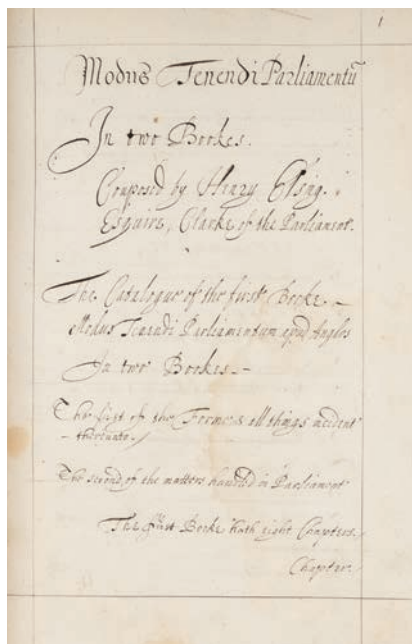 1
Modus Tenendi Parliamentũ
In two Bookes.
Composed by Henry Elsing.
Esquire, Clarke of the Parliament.
The Catalogue of the first Booke –
Modus Tenendi Parliamentum apud Anglos
In two Bookes. –
The first of the Forme & all things incident
– thereunto.
The second of the matters handled in Parliament
The first Booke hath eight Chapters.
Chapter.